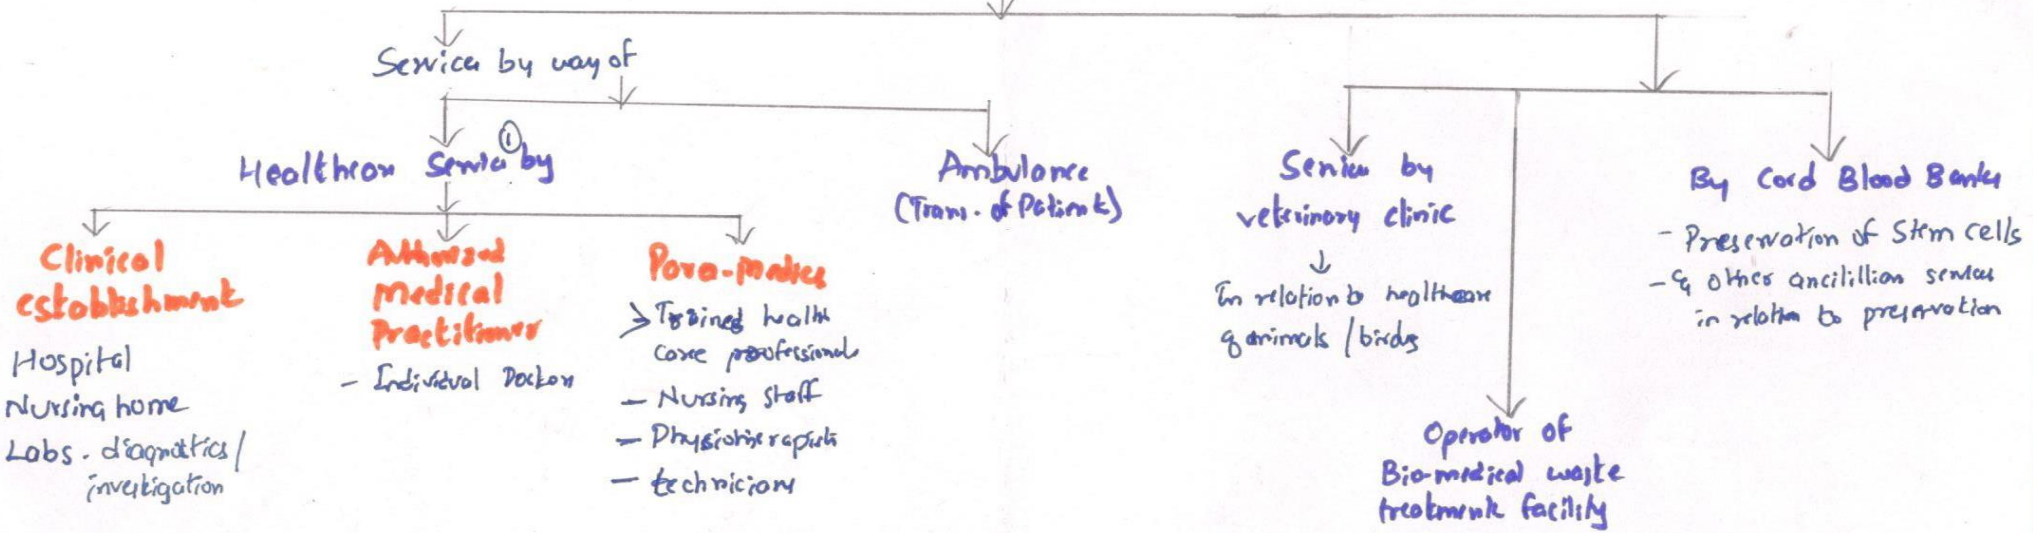 Services by way of
Healthcare Service ① by
Ambulance
(Trans. of Patient)
Clinical
establishment
Hospital
Nursing home
Labs - diagnostics/
investigation
Authorized
medical
Practitioner
- Individual Doctors
Para-medics
> Trained health
care professionals
- Nursing staff
- Physiotherapists
- technicians
Services by
veterinary clinic
↓
In relation to healthcare
of animals / birds
Operator of
Bio-medical waste
treatment facility
By Cord Blood Banks
- Preservation of Stem cells
- & other ancillion services
in relation to preservation